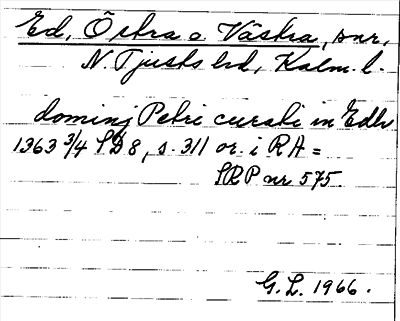 Ed, Östra o Västra, snr,
N. Tjusts hd, Kalm. l.
dominj Petri curati in Edhr
1363 3/4 SD8, s. 311 or. i RA =
SRP nr 575.
G.L. 1966.